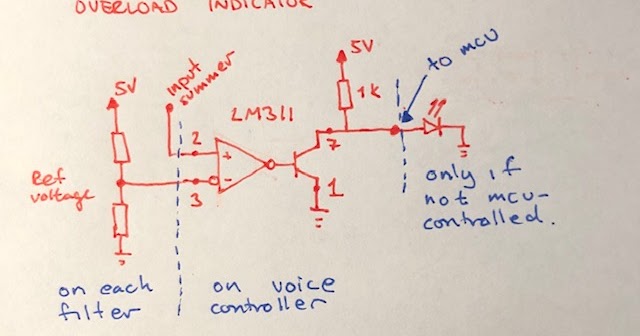 OVERLOAD INDICATOR
5V
input
summer
LM311
2
+
3
-
Ref
voltage
5V
1K
7
1
to mcu
only if
not mcu-
controlled.
on each
filter
on voice
controller